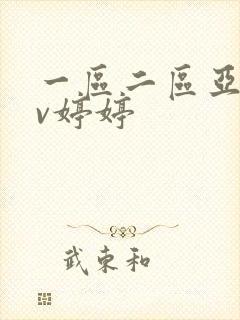 一區二區亞
v婷婷
武東和